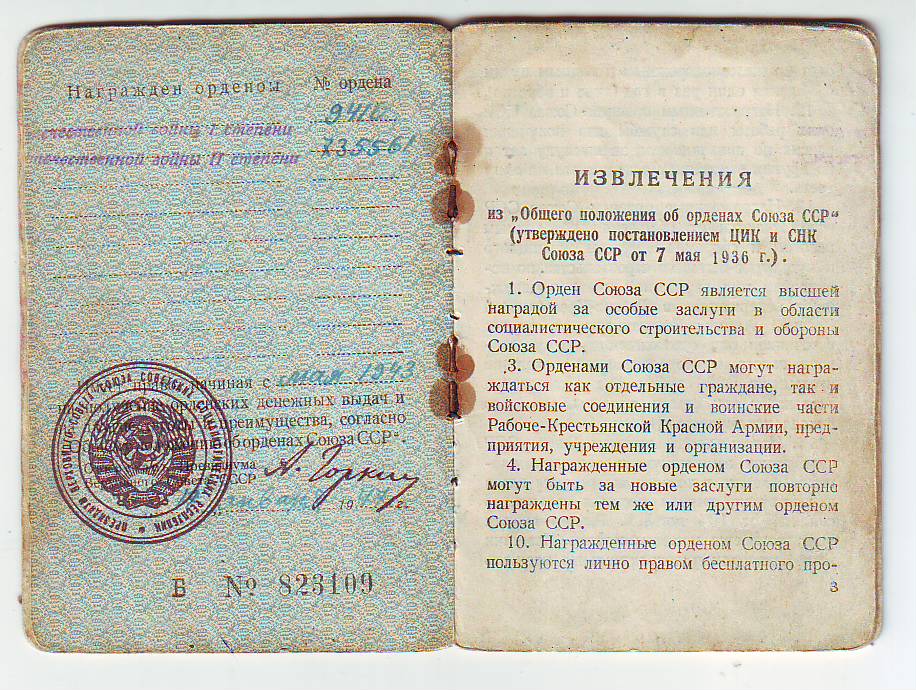 Награжден орденом № ордена
941
Отечественной войны I степени
Отечественной войны II степени 735561
начиная с мая 1943
денежных выдач и
преимущества, согласно
об орденах Союза ССР“
А. Горкин
19
Б № 823109
ИЗВЛЕЧЕНИЯ
из „Общего положения об орденах Союза ССР“
(утверждено постановлением ЦИК и СНК
Союза ССР от 7 мая 1936 г.).
1. Орден Союза ССР является высшей
наградой за особые заслуги в области
социалистического строительства и обороны
Союза ССР.
3. Орденами Союза ССР могут награ-
ждаться как отдельные граждане, так и
войсковые соединения и воинские части
Рабоче-Крестьянской Красной Армии, пред-
приятия, учреждения и организации.
4. Награжденные орденом Союза ССР
могут быть за новые заслуги повторно
награждены тем же или другим орденом
Союза ССР.
10. Награжденные орденом Союза ССР
пользуются лично правом бесплатного про-
3